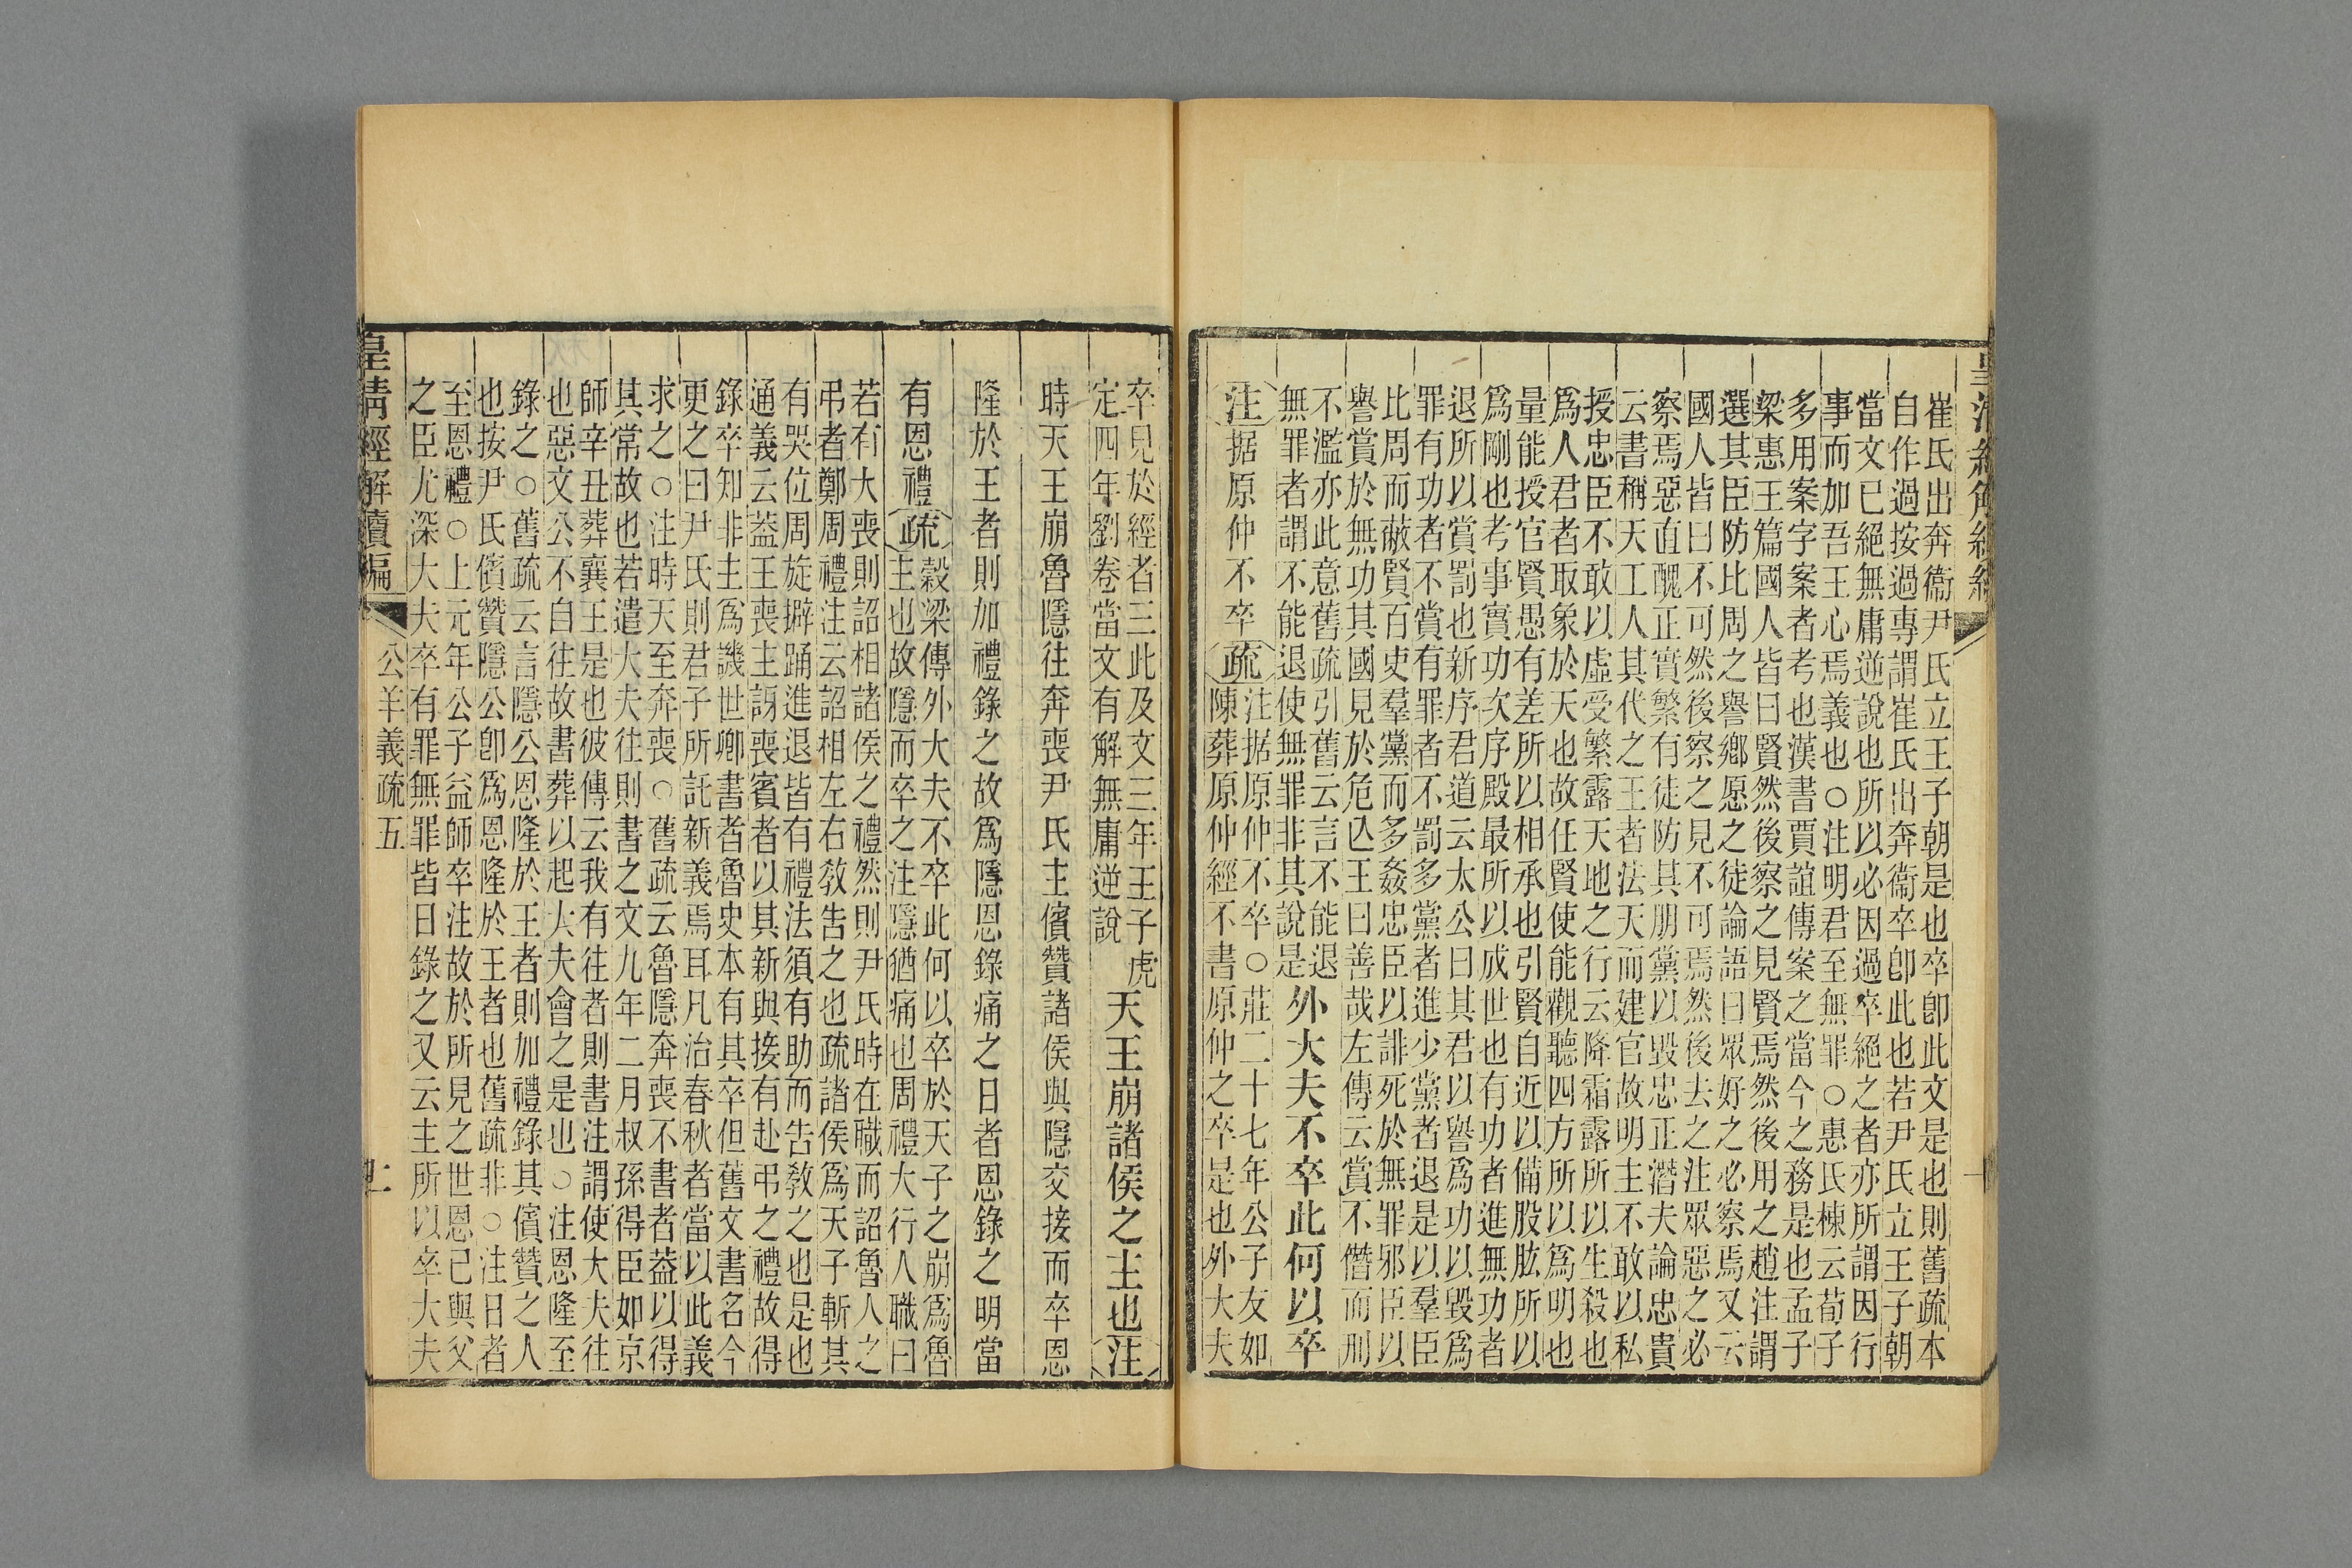 崔氏出奔衞尹氏立王子朝是也卒卽此文是也則舊疏本
自作過按過專謂崔氏出奔衞卒卽此也若尹氏立王子朝
當文已絕無庸逆說也所以必因過卒絕之者亦所謂因行
事而加吾王心焉義也○注明君至無罪○惠氏棟云荀子
多用案字案者考也漢書賈誼傳案之當今之務是也孟子
梁惠王篇國人皆曰賢然後察之見賢焉然後用之趙注謂
選其臣防比周之譽鄉愿之徒論語曰眾好之必察焉又云
國人皆曰不可然後察之見不可焉然後去之注眾惡之必
察焉惡直醜正實繁有徒防其朋黨以毀忠正潛夫論忠貴
云書稱天工人其代之王者法天而建官故明主不敢以私
授忠臣不敢以虛受繁露天地之行云降霜露所以生殺也
爲人君者取象於天也故任賢使能觀聽四方所以爲明也
量能授官賢愚有差所以相承也引賢自近以備股肱所以
爲剛也考事實功次序殿最所以成世也有功者進無功者
退所以賞罰也新序君道云太公曰其君以譽爲功以毀爲
罪有功者不賞有罪者不罰多黨者進少黨者退是以羣臣
比周而蔽賢百吏羣黨而多姦忠臣以誹死於無罪邪臣以
譽賞於無功其國見於危亾王曰善哉左傳云賞不僭而刑
不濫亦此意舊疏引舊云言不能退
無罪者謂不能退使無罪非其說是
外大夫不卒此何以卒
注据原仲不卒疏
注据原仲不卒○莊二十七年公子友如
陳葬原仲經不書原仲之卒是也外大夫
卒見於經者三此及文三年王子虎
定四年劉卷當文有解無庸逆說
天王崩諸侯之主也注
時天王崩魯隱往奔喪尹氏主儐贊諸侯與隱交接而卒恩
隆於王者則加禮錄之故爲隱恩錄痛之日者恩錄之明當
有恩禮疏
穀梁傳外大夫不卒此何以卒於天子之崩爲魯
主也故隱而卒之注隱猶痛也周禮大行人職曰
若有大喪則詔相諸侯之禮然則尹氏時在職而詔魯人之
弔者鄭周禮注云詔相左右敎告之也疏諸侯爲天子斬其
有哭位周旋擗踊進退皆有禮法須有助而告敎之也是也
通義云葢王喪主訝喪賓者以其新與接有赴弔之禮故得
錄卒知非主爲譏世卿書者魯史本有其卒但舊文書名今
更之曰尹氏則君子所託新義焉耳凡治春秋者當以此義
求之○注時天至奔喪○舊疏云魯隱奔喪不書者葢以得
其常故也若遣大夫往則書之文九年二月叔孫得臣如京
師辛丑葬襄王是也彼傳云我有往者則書注謂使大夫往
也惡文公不自往故書葬以起大夫會之是也○注恩隆至
錄之○舊疏云言隱公恩隆於王者則加禮錄其儐贊之人
也按尹氏儐贊隱公卽爲恩隆於王者也舊疏非○注日者
至恩禮○上元年公子益師卒注故於所見之世恩己與父
之臣尤深大夫卒有罪無罪皆日錄之又云主所以卒大夫
皇清經解續編
公羊義疏五